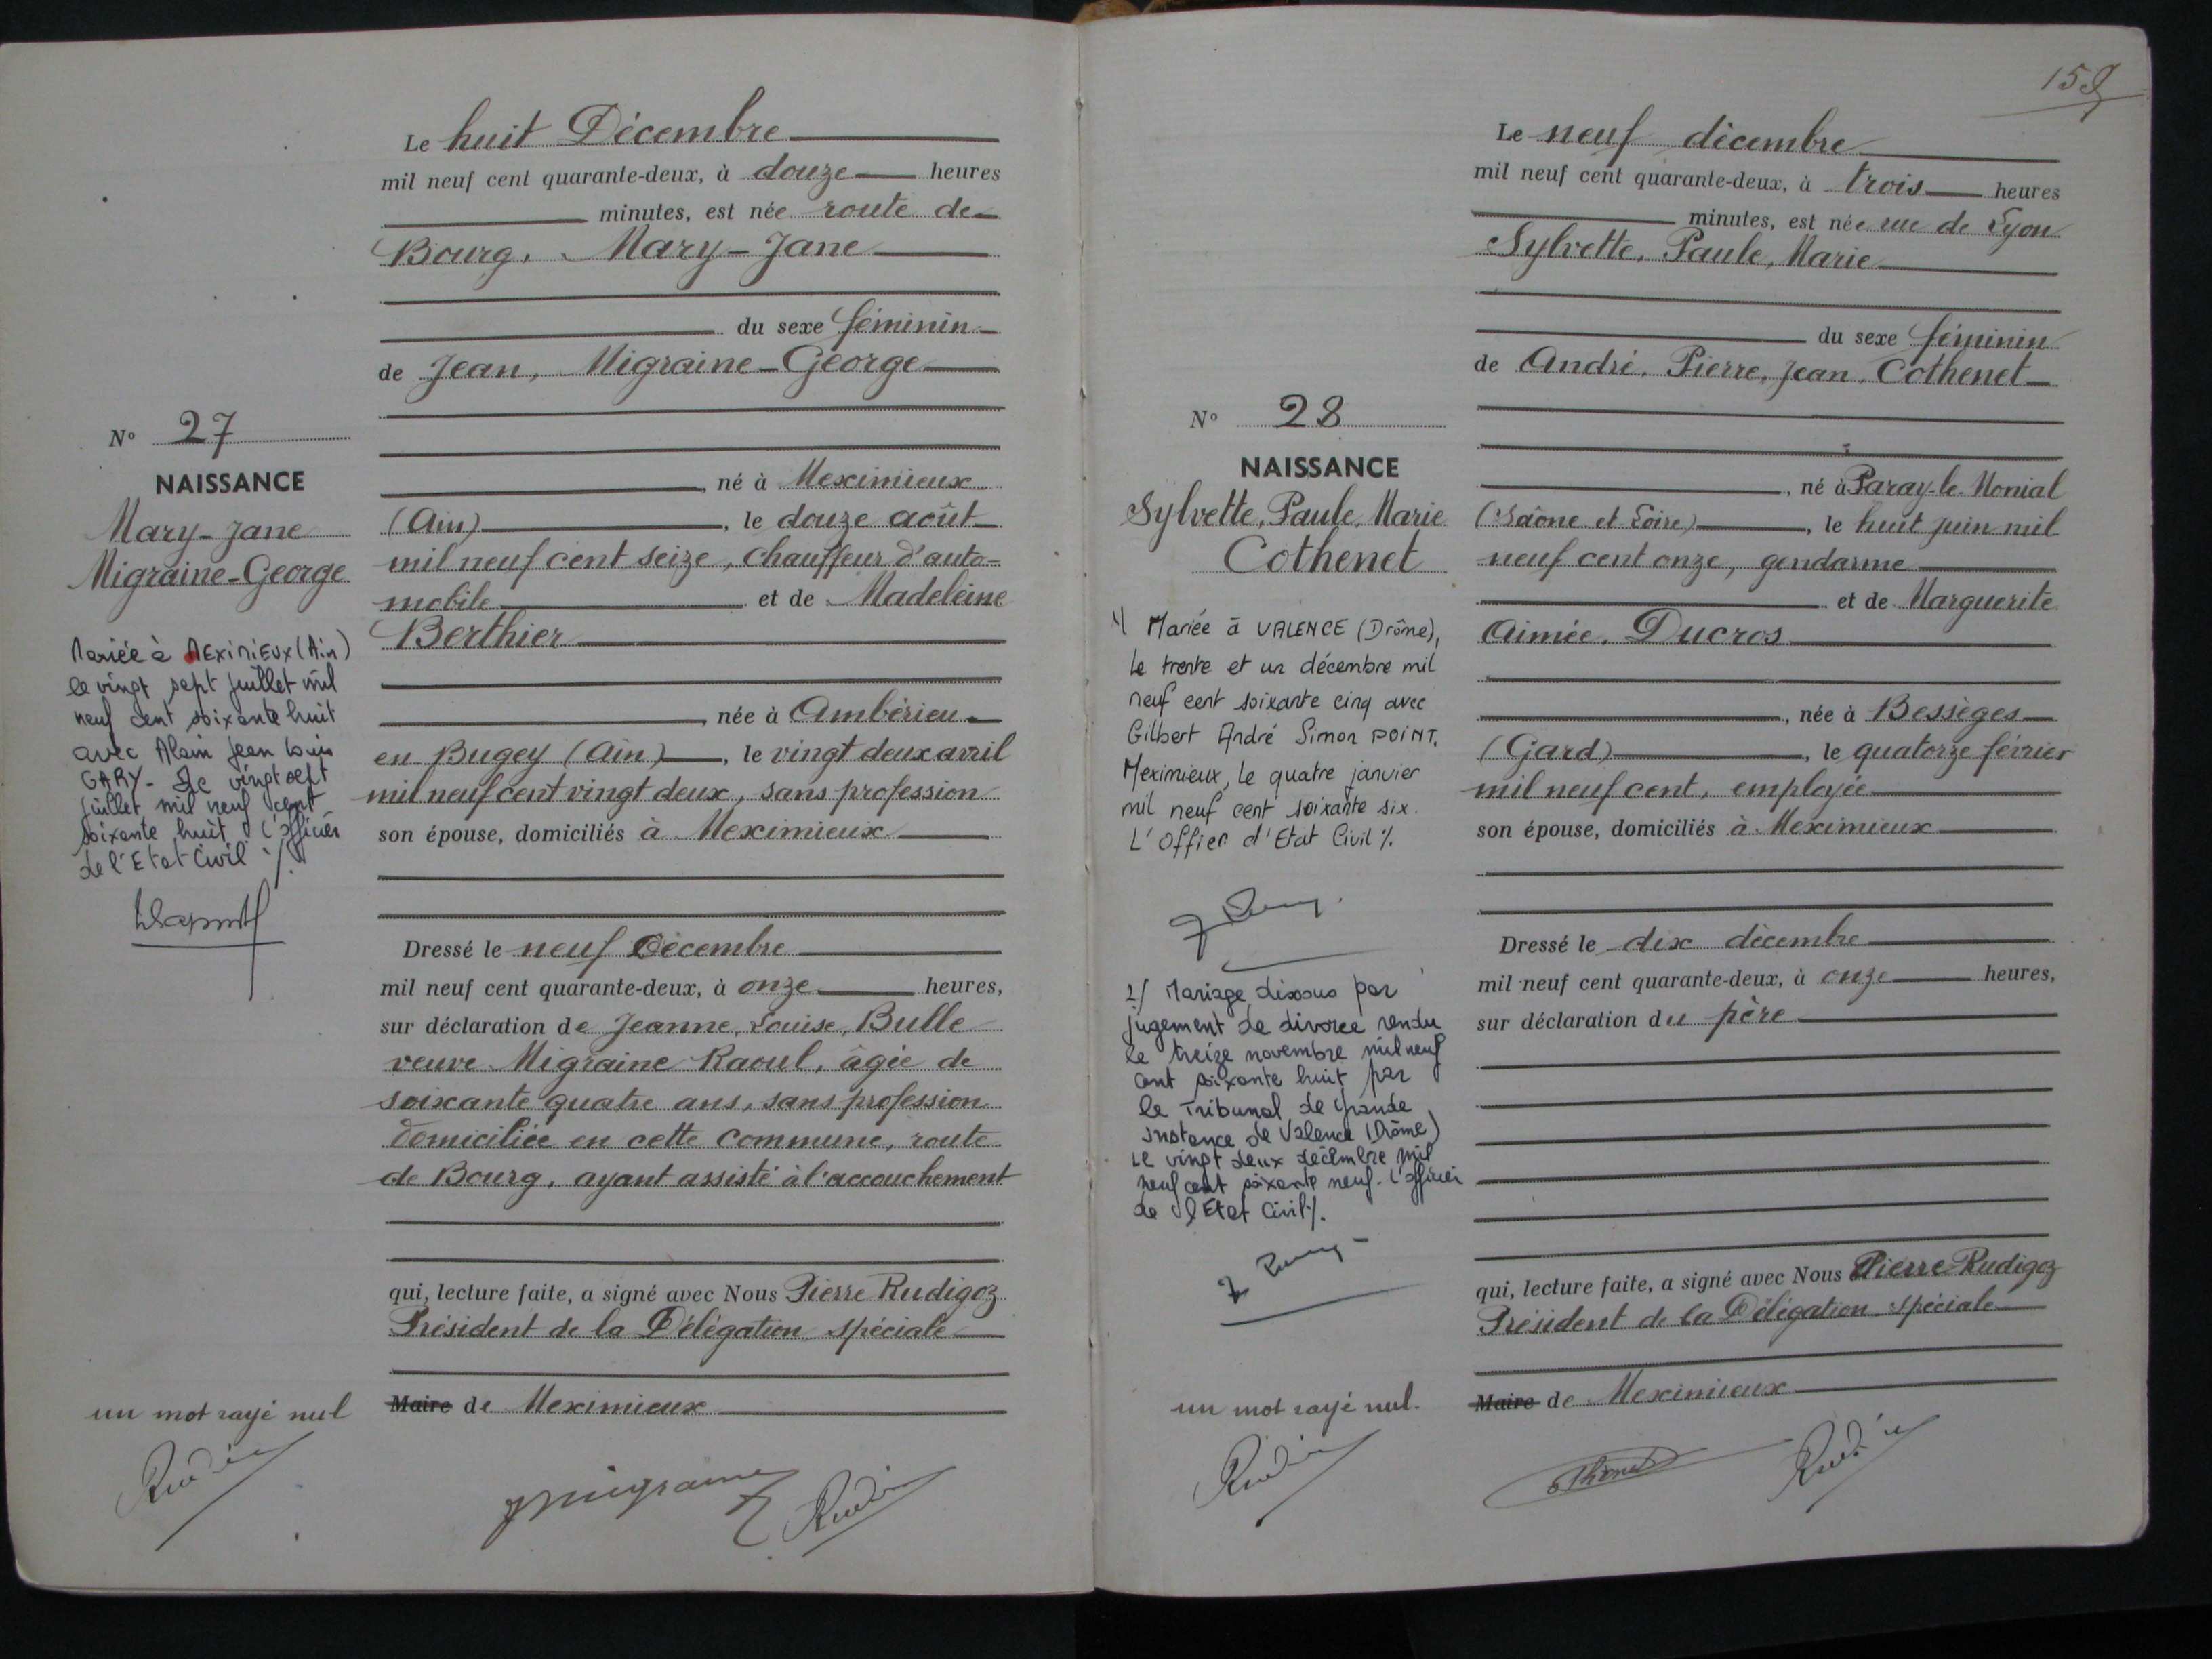 Le huit Décembre
mil neuf cent quarante-deux, à douze heures
minutes, est née route de
Bourg, Mary-Jane
du sexe féminin
de Jean, Migraine-George
N° 27
NAISSANCE
Mary-Jane
Migraine-George
né à Meximieux
(Ain), le douze août
mil neuf cent seize, chauffeur d'auto-
mobile et de Madeleine
Berthier
née à Ambérieu
en Bugey (Ain), le vingt deux avril
mil neuf cent vingt deux, sans profession
son épouse, domiciliés à Meximieux
Mariée à MEXIMIEUX (Ain)
le vingt sept juillet mil
neuf cent soixante huit
avec Alain Jean Louis
GARY - Le vingt sept
juillet mil neuf cent
soixante huit L'officier
de l'Etat Civil ./.
Dressé le neuf Décembre
mil neuf cent quarante-deux, à onze heures,
sur déclaration de Jeanne, Louise, Bulle
veuve Migraine Raoul, âgée de
soixante quatre ans, sans profession
domiciliée en cette commune, route
de Bourg, ayant assisté à l'accouchement
qui, lecture faite, a signé avec Nous Pierre Rudigoz
Président de la Délégation spéciale
Maire de Meximieux
un mot rayé nul
158
Le neuf décembre
mil neuf cent quarante-deux, à trois heures
minutes, est née rue de Lyon
Sylvette, Paule, Marie
du sexe féminin
de André, Pierre, Jean, Cothenet
N° 28
NAISSANCE
Sylvette, Paule, Marie
Cothenet
né à Paray-le-Monial
(Saône et Loire), le huit juin mil
neuf cent onze, gendarme
et de Marguerite
Aimée, Ducros
née à Bessèges
(Gard), le quatorze février
mil neuf cent, employée
son épouse, domiciliés à Meximieux
1/ Mariée à VALENCE (Drôme),
le trente et un décembre mil
neuf cent soixante cinq avec
Gilbert André Simon POINT.
Meximieux, le quatre janvier
mil neuf cent soixante six.
L'Offier d'Etat Civil ./.
2/ Mariage dissous par
jugement de divorce rendu
le treize novembre mil neuf
cent soixante huit par
le Tribunal de Grande
Instance de Valence (Drôme)
Le vingt deux décembre mil
neuf cent soixante neuf. L'officier
de l'Etat Civil ./.
Dressé le dix décembre
mil neuf cent quarante-deux, à onze heures,
sur déclaration du père
qui, lecture faite, a signé avec Nous Pierre Rudigoz
Président de la Délégation spéciale
Maire de Meximieux
un mot rayé nul.